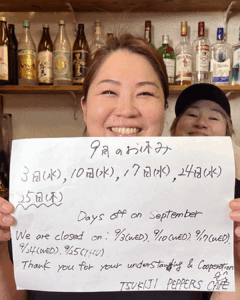 9月のお休み
3日(水), 10日(水), 17日(水), 24日(水)
25日(木)
Days off on September
We are closed on: 9/3(WED), 9/10(WED), 9/17(WED),
9/24(WED), 9/25(THU)
Thank you for your understanding & Cooperation
TSUKIJI PEPPERS CAFE